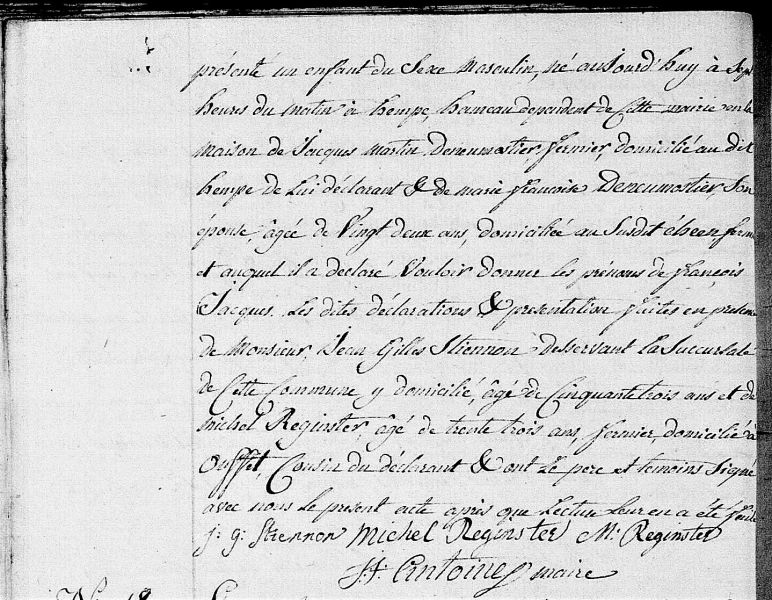 présenté un enfant du Sexe masculin, né aujourd'huy à Sept
heures du matin à hempe, hameau dependent de Cette mairie en la
maison de Jacques martin Deneumostier, fermier, domicilié au dit
hempe de Lui déclarant & de marie françoise Deneumostier, Son
épouse, âgée de Vingt deux ans, domiciliée au Susdit
et auquel il a declaré Vouloir donner les prénoms de françois
Jacques. Les dites déclarations & presentation faites en presence
de Monsieur Jean Gilles Stiennon desservant la Succursale
de Cette Commune y domicilié, âgé de Cinquante trois ans et de
michel Reginster, âgé de trente trois ans, fermier, domicilié à
Ouffet, Cousin du déclarant & ont Le pere et temoins Signé
avec nous Le present acte après que Lecture Leur en a été faite
j: g: Stiennon Michel Reginster M: Reginster
Antoine maire